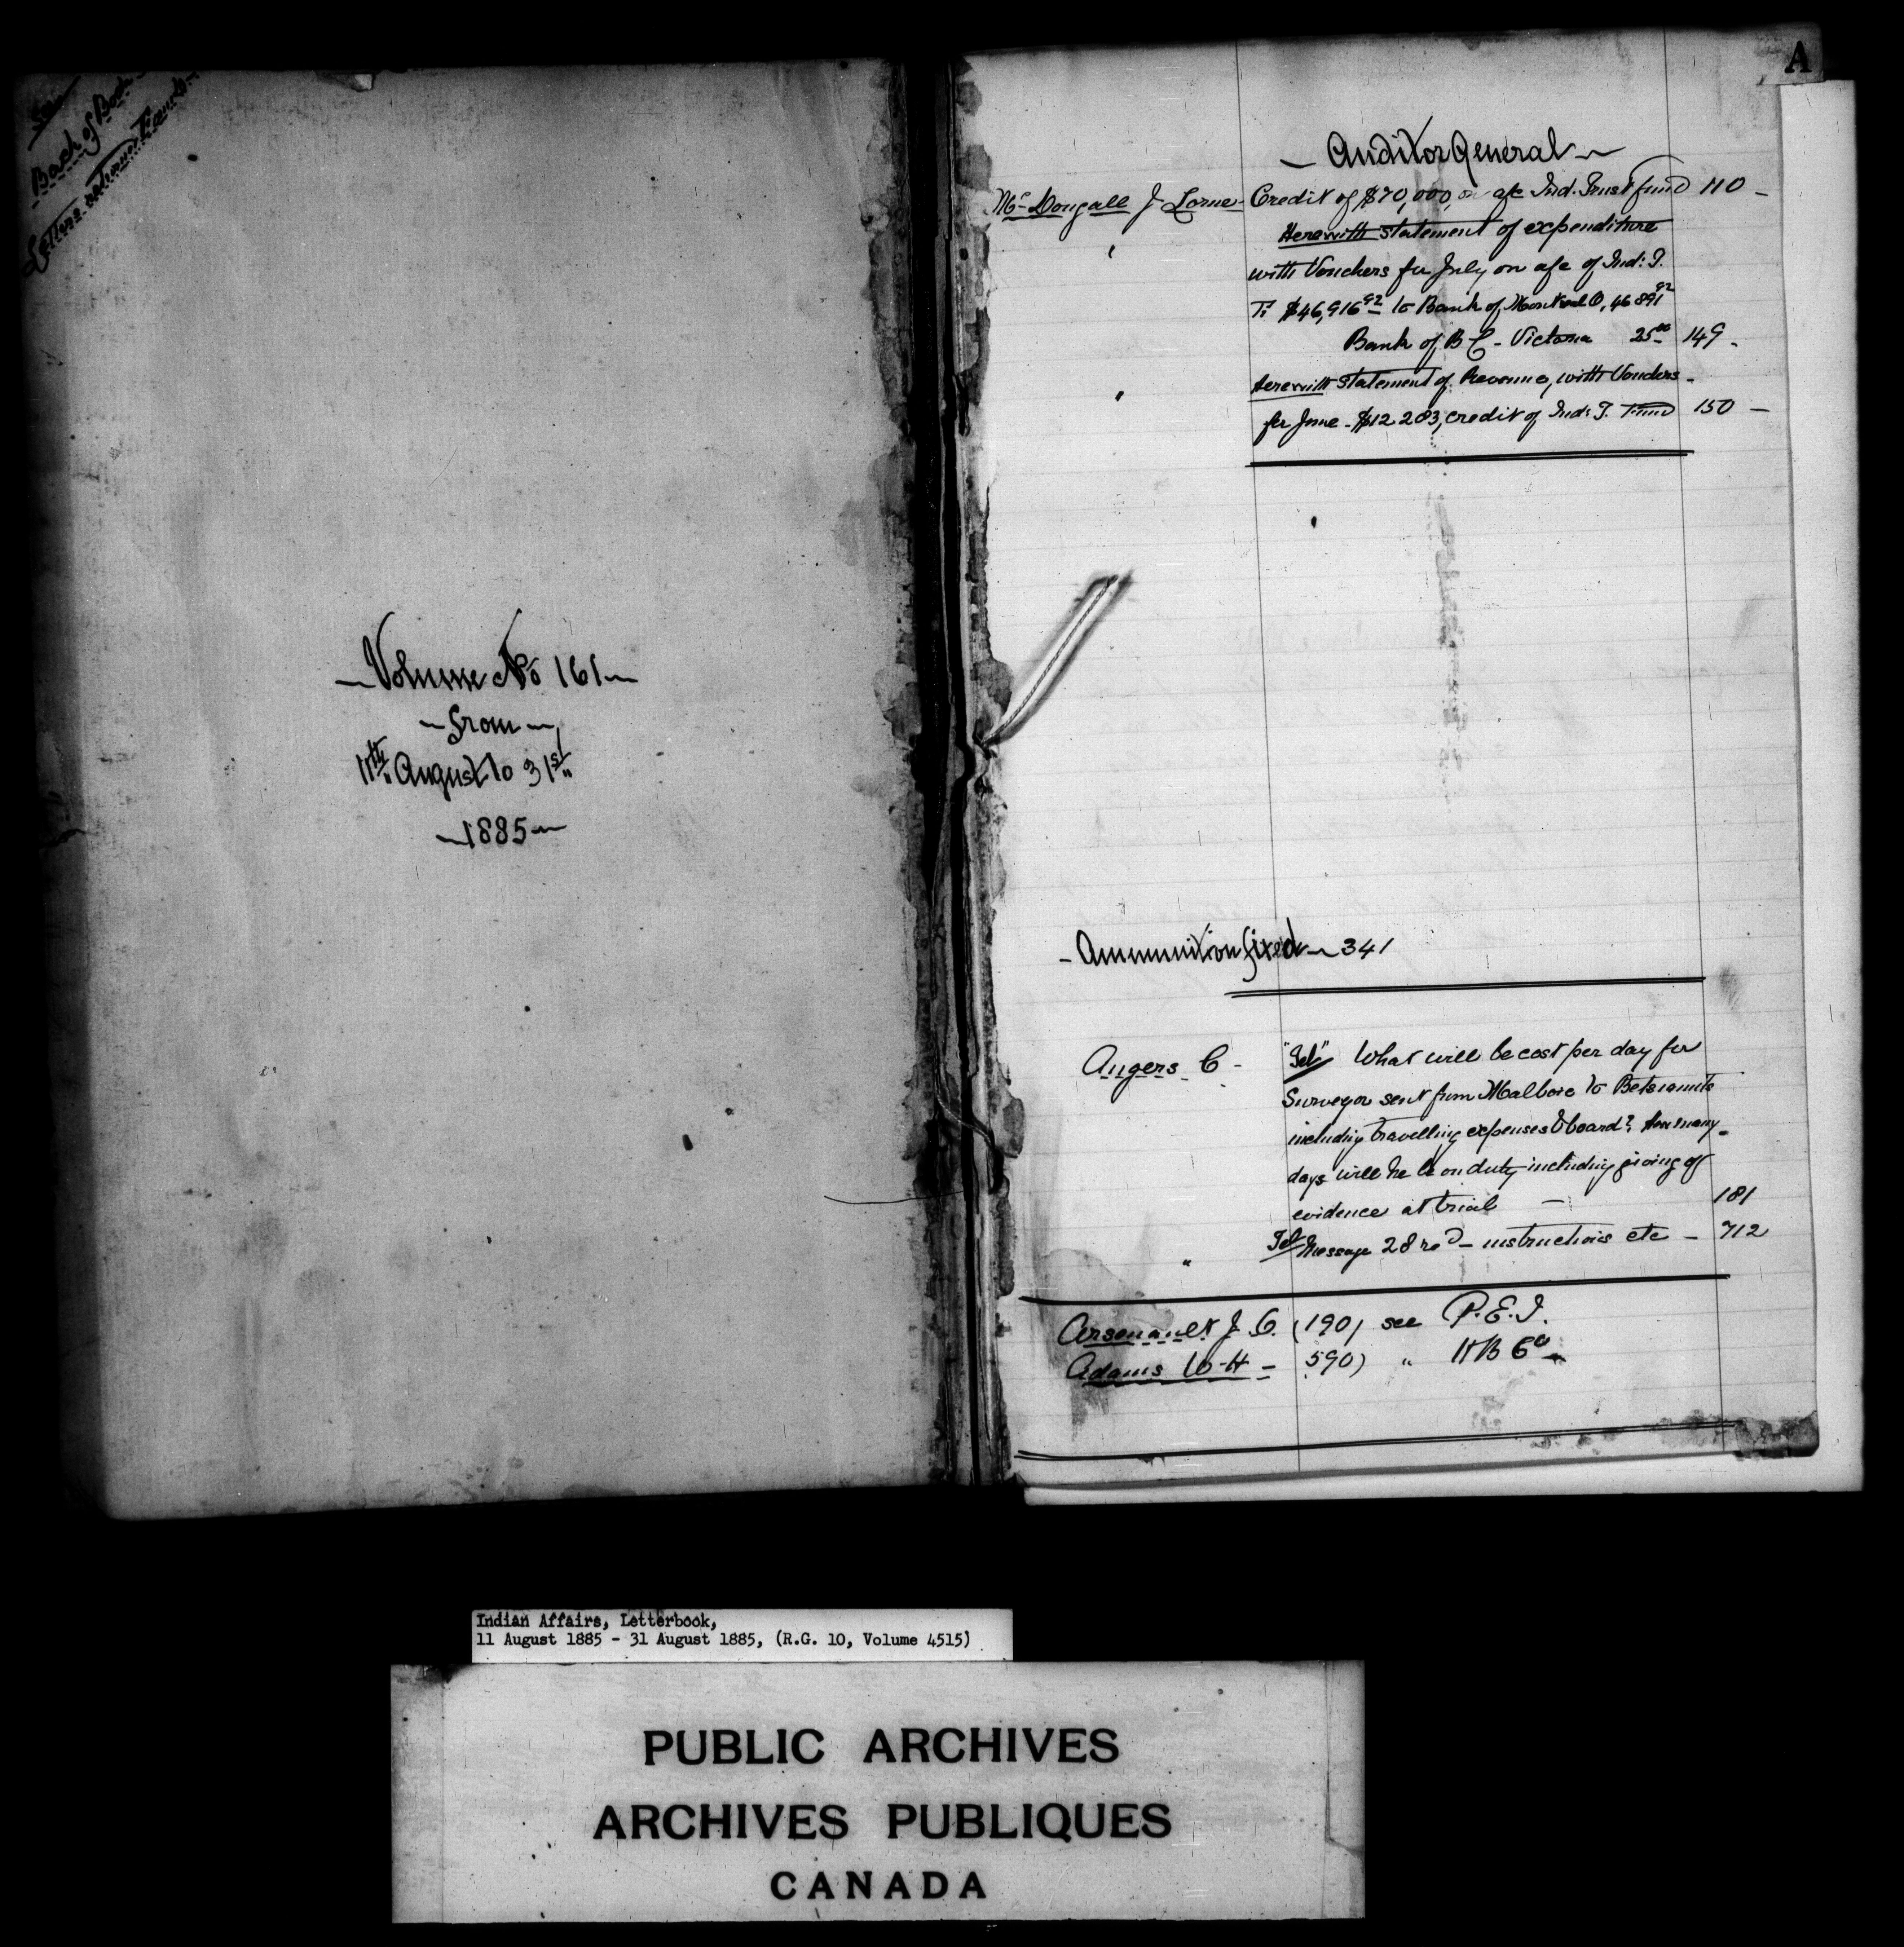 See
Back of Book
Letters
Volume No 161
from
11th August to 31st
1885
A
Auditor General
McDougall J Lorne - Credit of $70,000, on a/c Ind. Trust fund 110 -
" Herewith statement of expenditure
with Vouchers for July on a/c of Ind: T.
F. $46,916 92 to Bank of Montreal O, 46 891 92
Bank of B C - Victoria 25 00 149 -
" Herewith statement of Revenue, with Vouchers -
for June - $12 203, credit of Ind: T. Fund 150 -
Ammunition fixed - 341
Angers C - "Tel" What will be cost per day for
Surveyor sent from Malbaie to Betsiamits
including travelling expenses & board? How many
days will he be on duty including giving of
evidence at trial - 181
" Tel Message 28 recd - instructions etc - 712
Arsenault J. O. (190) see P.E.I.
Adams W H - 590) " H B Co
Indian Affairs, Letterbook,
11 August 1885 - 31 August 1885, (R.G. 10, Volume 4515)
PUBLIC ARCHIVES
ARCHIVES PUBLIQUES
CANADA